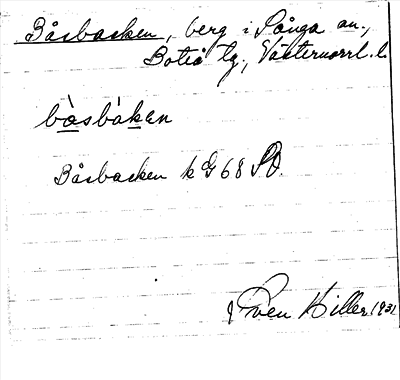 Båsbacken, berg i Sånga sn.,
Boteå tg., Västernorrl. l.
bòsbáken
Båsbacken k G 68 SO.
Sven Hiller 1931